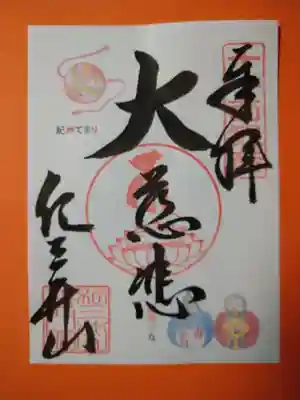 奉拝
大慈悲
紀三井山
紀州てまり